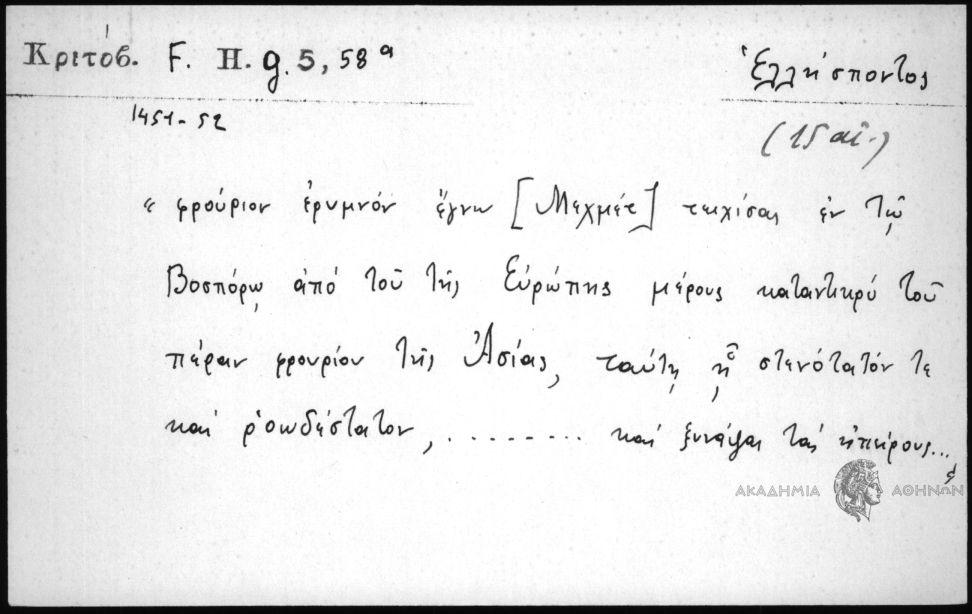 Κριτόβ. F. H. g. 5, 58ᵃ Ἑλλήσποντος
1451-52
(15 αἰ.)
“ φρούριον ἐρυμνόν ἔγνω [Μεχμέτ] τειχίσαι ἐν τῷ
Βοσπόρῳ ἀπό τοῦ τῆς Εὐρώπης μέρους καταντικρύ τοῦ
πέραν φρουρίου τῆς Ἀσίας, ταύτῃ ᾗ στενότατόν τε
καί ῥοωδέστατον, ......... καί ξυνάψαι τάς ἠπείρους...
ΑΚΑΔΗΜΙΑ ΑΘΗΝΩΝ